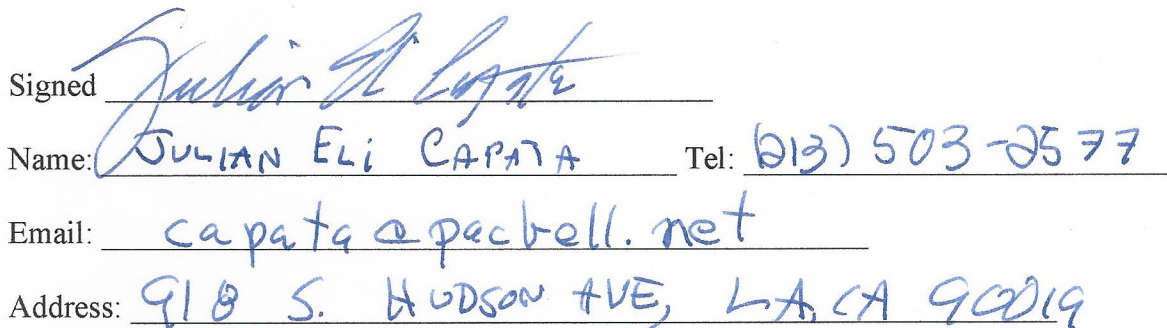 Signed Julian Eli Capata
Name: JULIAN ELi CAPATA Tel: (213) 503-2577
Email: capata@pacbell.net
Address: 918 S. HUDSON AVE, LA, CA 90019